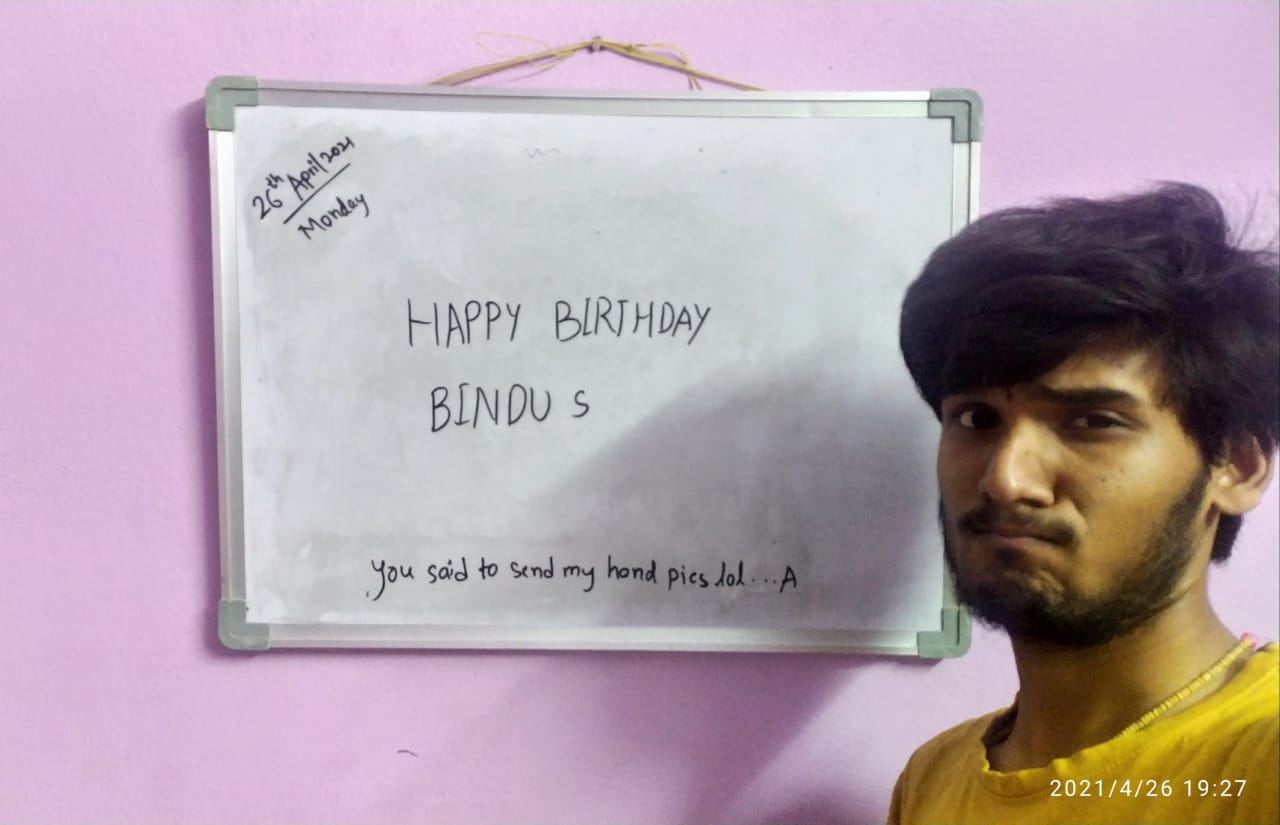 26th April 2021
Monday
HAPPY BIRTHDAY
BINDU S
you said to send my hand pics lol...A
2021/4/26 19:27